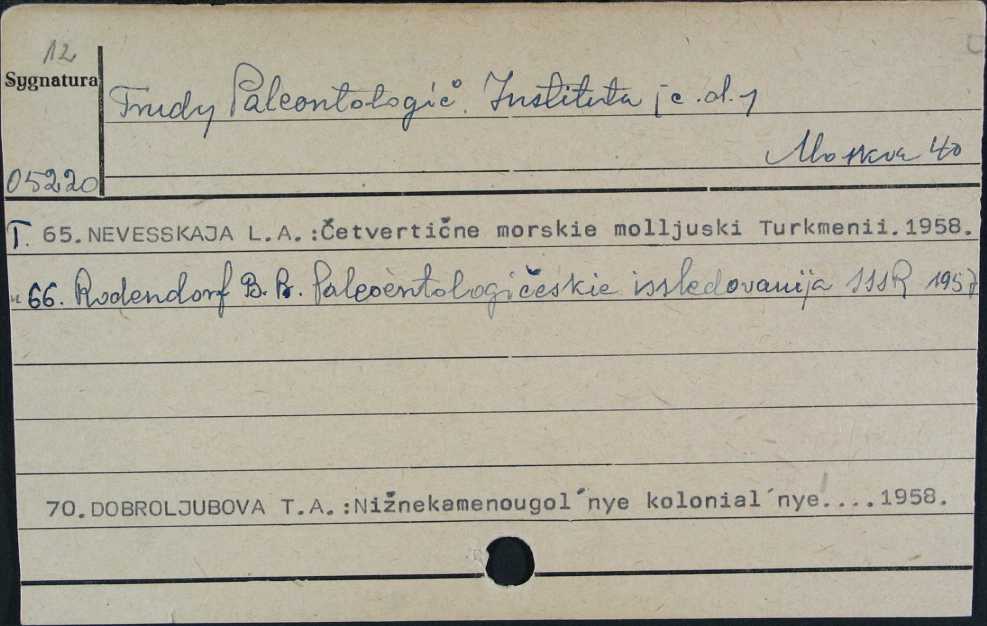 12
Sygnatura
Trudy Paleontologič. Instituta /c.d./
Moskva 40
05220
T. 65.NEVESSKAJA L.A.:Četvertične morskie molljuski Turkmenii.1958.
" 66. Rodendorf B.B. Paleontologičeskie issledovanija SSSR 1957
70.DOBROLJUBOVA T.A.:Nižnekamenougol´nye kolonial´nye....1958.